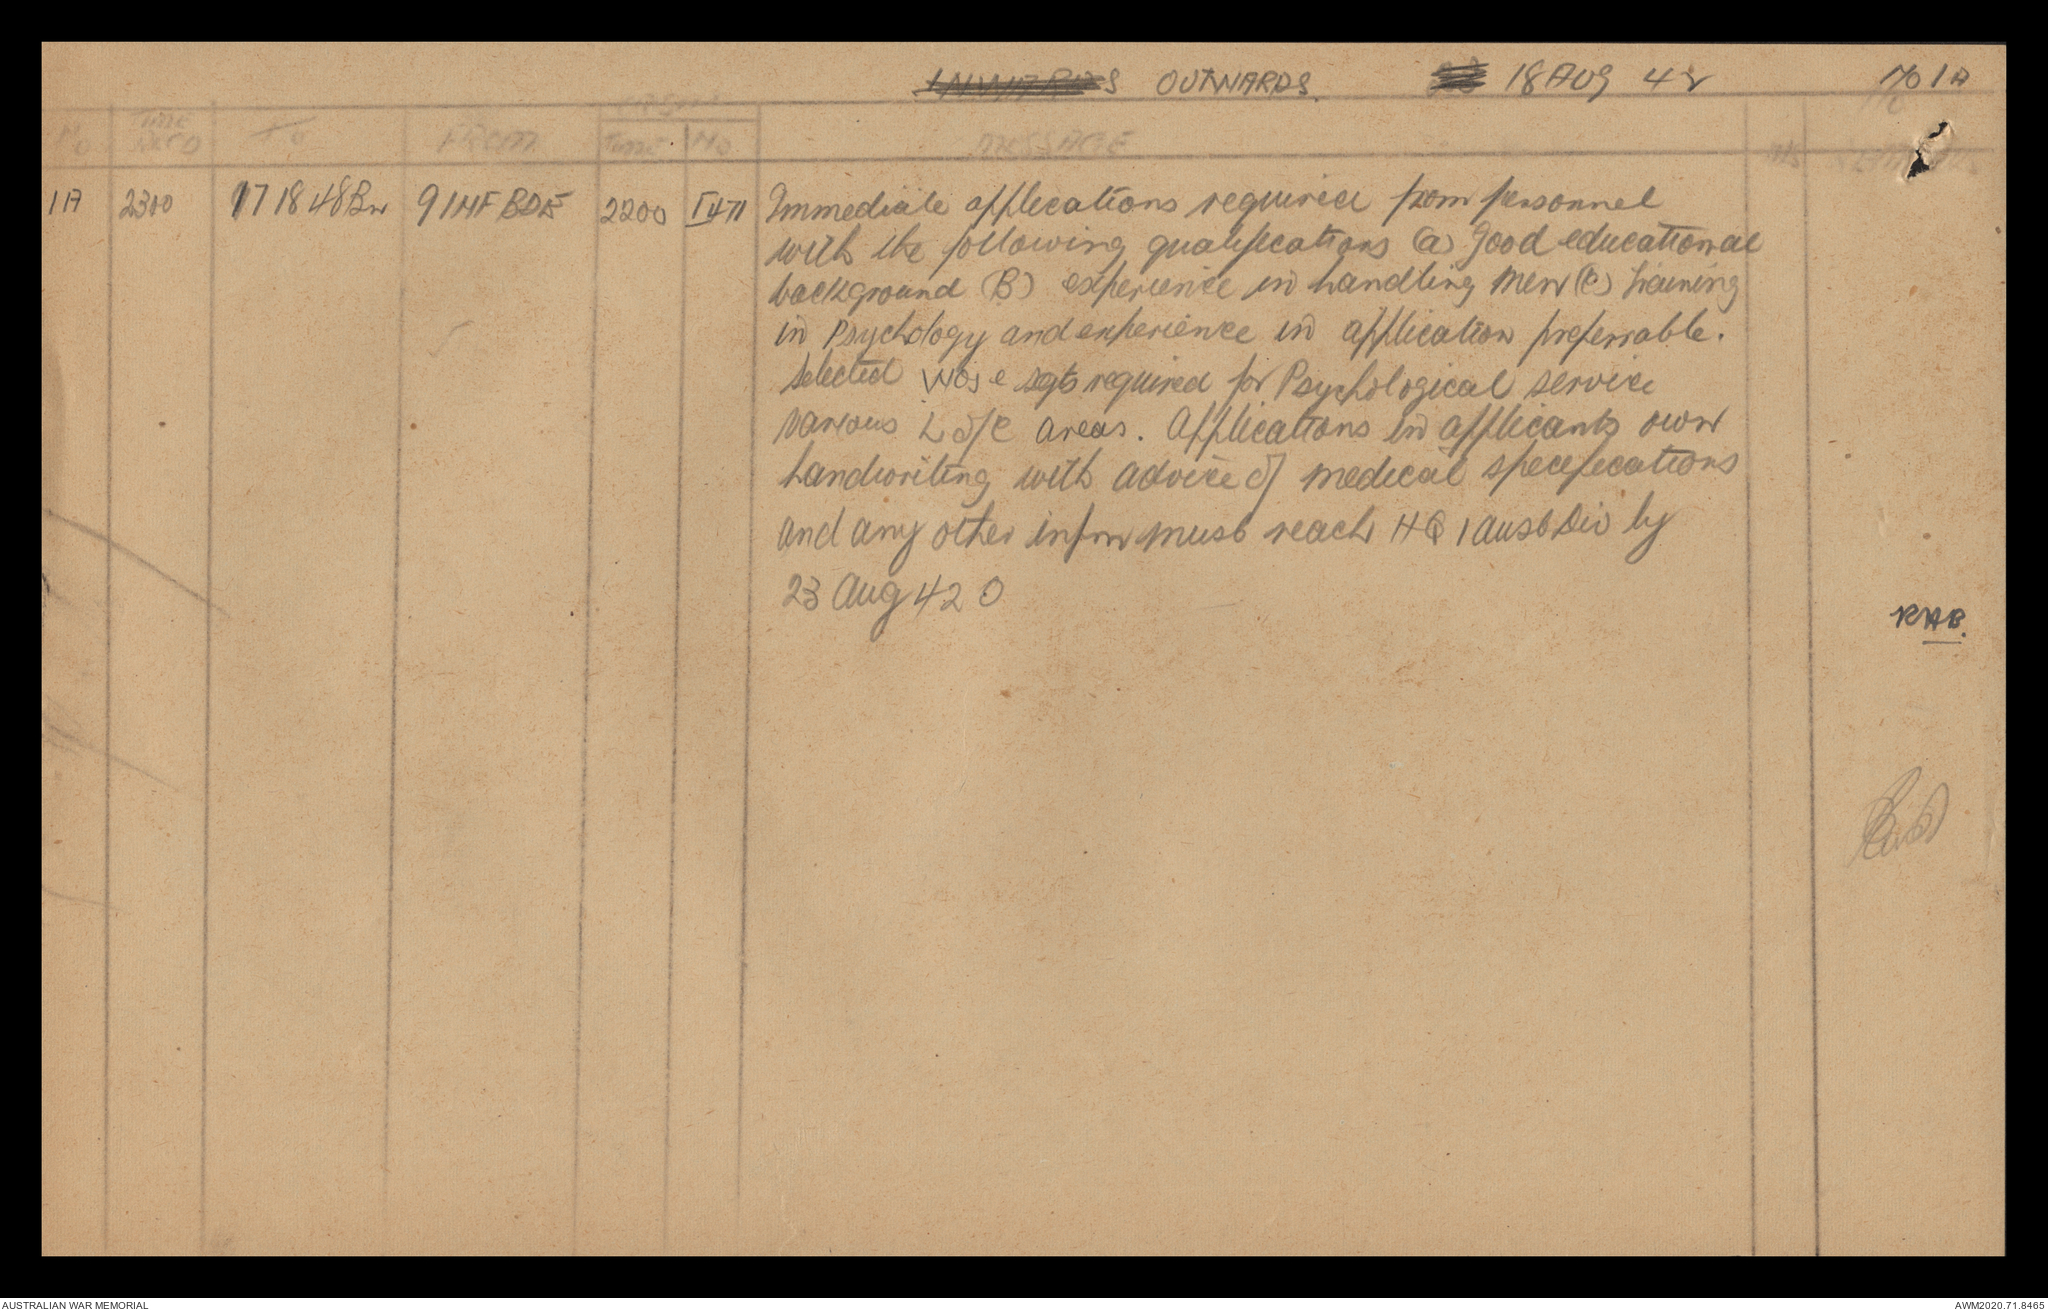 INWARDS OUTWARDS. 18 AUG 42 No 1A
No TIME RECD TO FROM ORIGIN TIME No MESSAGE
1A 2300 17 18 48 Bn 9 INF BDE 2200 I471 Immediate applications required from personnel
with the following qualifications (a) good educational
background (B) experience in handling men (c) training
in Psychology and experience in application preferrable.
Selected WOs & sgts required for Psychological service
various L of C areas. Applications in applicants own
handwriting with advice of medical specifications
and any other infm must reach HQ 1 Aust Div by
23 Aug 42 O
RAB.
AUSTRALIAN WAR MEMORIAL AWM2020.71.8465